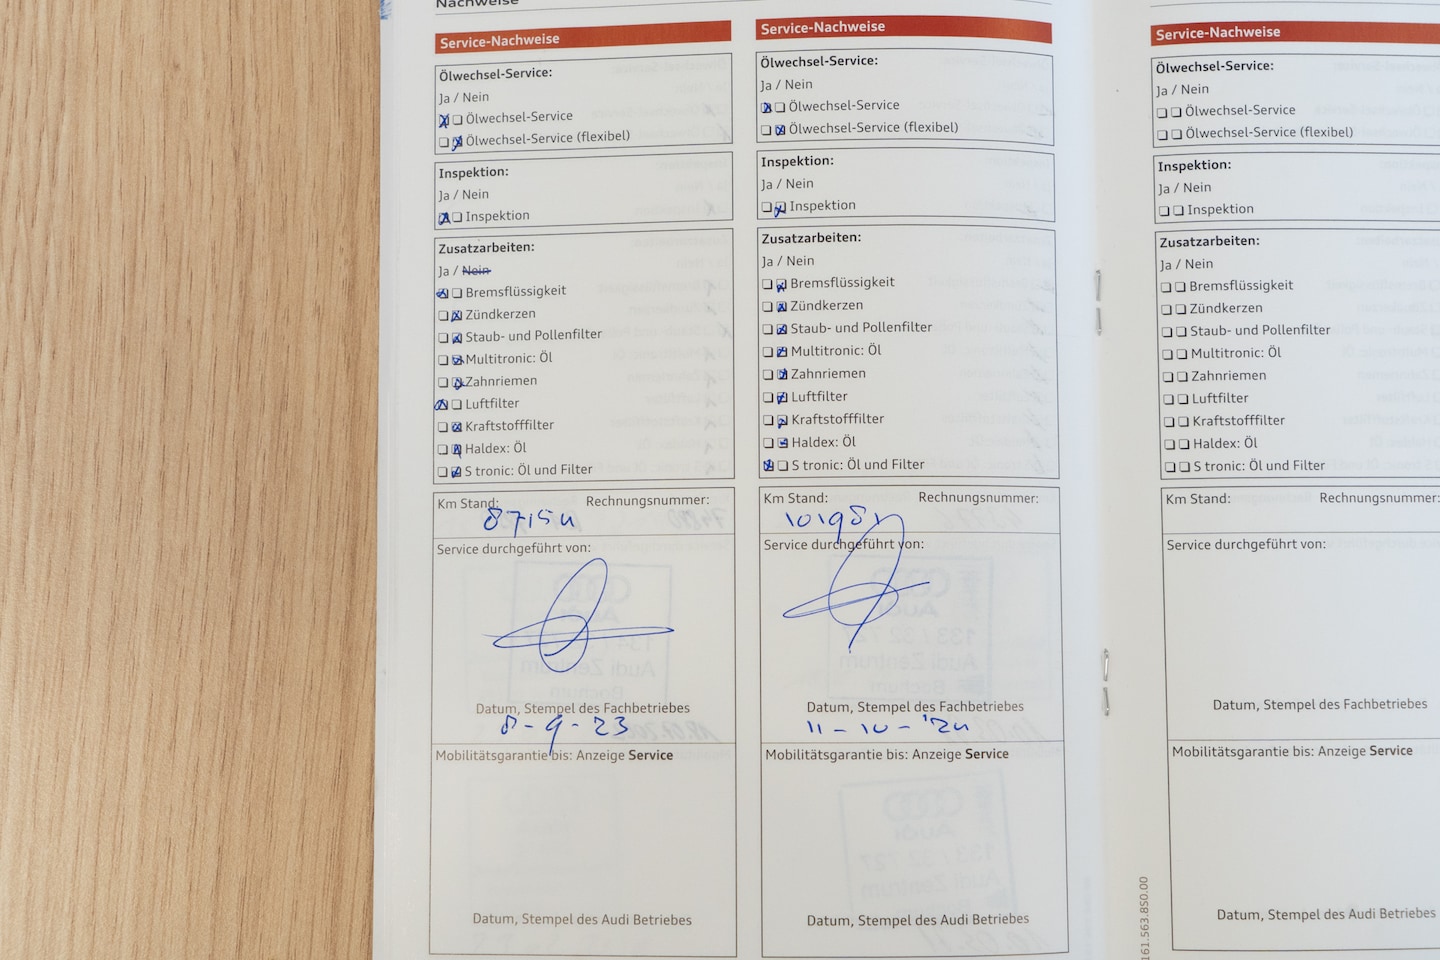 Nachweise
Service-Nachweise
Ölwechsel-Service:
Ja / Nein
Ölwechsel-Service
Ölwechsel-Service (flexibel)
Inspektion:
Ja / Nein
Inspektion
Zusatzarbeiten:
Ja / Nein
Bremsflüssigkeit
Zündkerzen
Staub- und Pollenfilter
Multitronic: Öl
Zahnriemen
Luftfilter
Kraftstofffilter
Haldex: Öl
S tronic: Öl und Filter
Km Stand: Rechnungsnummer:
Service durchgeführt von:
Datum, Stempel des Fachbetriebes
8-9-23
Mobilitätsgarantie bis: Anzeige Service
Datum, Stempel des Audi Betriebes
Service-Nachweise
Ölwechsel-Service:
Ja / Nein
Ölwechsel-Service
Ölwechsel-Service (flexibel)
Inspektion:
Ja / Nein
Inspektion
Zusatzarbeiten:
Ja / Nein
Bremsflüssigkeit
Zündkerzen
Staub- und Pollenfilter
Multitronic: Öl
Zahnriemen
Luftfilter
Kraftstofffilter
Haldex: Öl
S tronic: Öl und Filter
Km Stand: Rechnungsnummer:
Service durchgeführt von:
Datum, Stempel des Fachbetriebes
11-10-'24
Mobilitätsgarantie bis: Anzeige Service
Datum, Stempel des Audi Betriebes
Service-Nachweise
Ölwechsel-Service:
Ja / Nein
Ölwechsel-Service
Ölwechsel-Service (flexibel)
Inspektion:
Ja / Nein
Inspektion
Zusatzarbeiten:
Ja / Nein
Bremsflüssigkeit
Zündkerzen
Staub- und Pollenfilter
Multitronic: Öl
Zahnriemen
Luftfilter
Kraftstofffilter
Haldex: Öl
S tronic: Öl und Filter
Km Stand: Rechnungsnummer:
Service durchgeführt von:
Datum, Stempel des Fachbetriebes
Mobilitätsgarantie bis: Anzeige Service
Datum, Stempel des Audi Betriebes
161.563.8S0.00